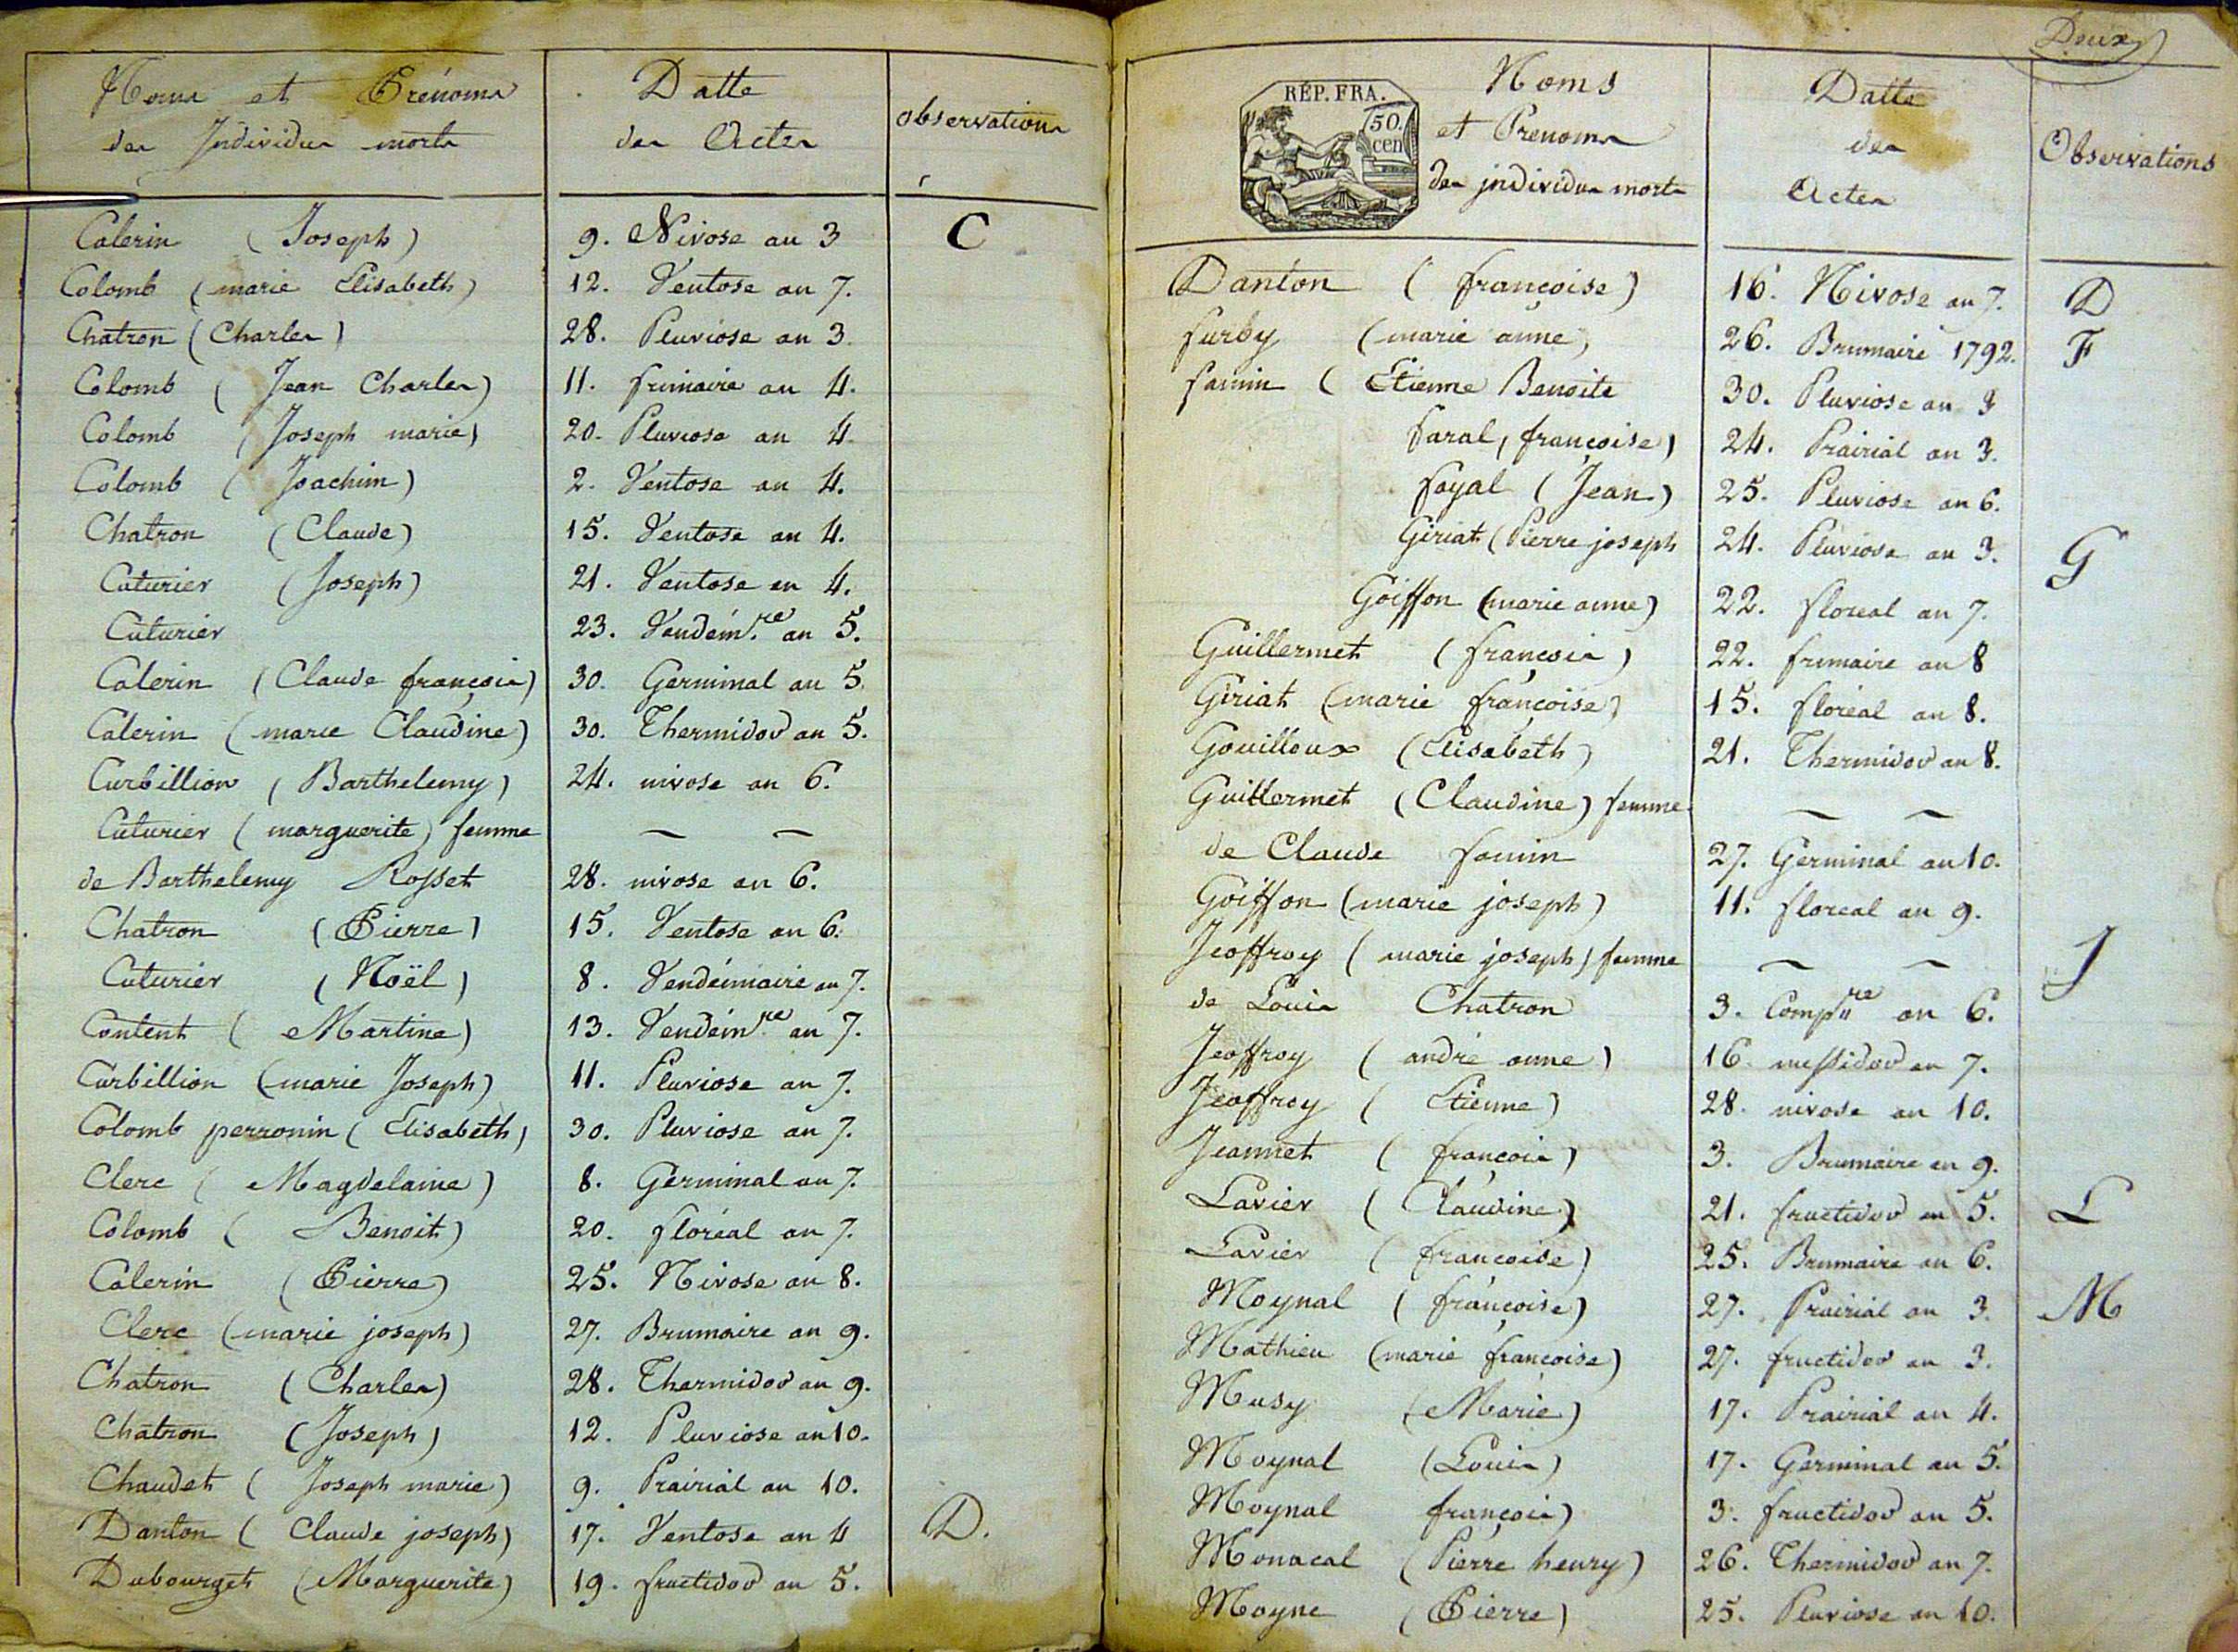 Noms et Prénoms
des Individus morts
Datte
des Actes
observations
Calerin (Joseph) 9. Nivose an 3 C
Colomb (marie Elisabeth) 12. Ventose an 7.
Chatron (Charles) 28. Pluviose an 3
Colomb (Jean Charles) 11. frimaire an 4.
Colomb (Joseph marie) 20. Pluviose an 4
Colomb (Joachim) 2. Ventose an 4.
Chatron (Claude) 15. Ventose an 4.
Cuturier (Joseph) 21. Ventose an 4.
Cuturier 23. Vendém.re an 5.
Calerin (Claude françois) 30. Germinal an 5.
Calerin (marie Claudine) 30. Thermidor an 5.
Curbillion (Barthelemy) 24. nivose an 6.
Cuturier (marguerite) femme ~ ~
de Barthelemy Rosset 28. nivose an 6.
Chatron (Pierre) 15. Ventose an 6.
Cuturier (Noël) 8. Vendémiaire an 7.
Content (Martine) 13. Vendém.re an 7.
Curbillion (marie Joseph) 11. Pluviose an 7.
Colomb perronin (Elisabeth) 30. Pluviose an 7.
Clerc (Magdelaine) 8. Germinal an 7.
Colomb (Benoit) 20. floréal an 7.
Calerin (Pierre) 25. Nivose an 8.
Clerc (marie joseph) 27. Brumaire an 9.
Chatron (Charles) 28. Thermidor an 9.
Chatron (Joseph) 12. Pluviose an 10.
Chaudet (Joseph marie) 9. Prairial an 10.
Danton (Claude joseph) 17. Ventose an 4 D.
Dubourget (Marguerite) 19. fructidor an 5.
Deux
RÉP. FRA.
50.
cen
Noms
et Prenoms
des individus morts
Datte
des
Actes
Observations
Danton (françoise) 16. Nivose an 7. D
furby (marie anne) 26. Brumaire 1792. F
famin (Etienne Benoite 30. Pluviose an 3
faral, françoise) 24. Prairial an 3.
foyal (Jean) 25. Pluviose an 6.
Giriat (Pierre joseph 24. Pluviose an 3. G
Goiffon (marie anne) 22. floreal an 7.
Guillermet (françois) 22. frimaire an 8
Giriat (marie françoise) 15. floréal an 8.
Gouilloux (Elisabeth) 21. Thermidor an 8.
Guillermet (Claudine) femme ~ ~
de Claude famin 27. Germinal an 10.
Goiffon (marie joseph) 11. floreal an 9.
Jeoffroy (marie joseph) femme ~ ~ J
de Louis Chatron 3. Comp.re an 6.
Jeoffroy (andré anne) 16. messidor an 7.
Jeoffroy (Etienne) 28. nivose an 10.
Jeannet (françois) 3. Brumaire an 9.
Lavier (Claudine) 21. fructidor an 5. L
Lavier (françoise) 25. Brumaire an 6.
Moynal (françoise) 27. Prairial an 3. M
Mathieu (marie françoise) 27. fructidor an 3.
Musy (Marie) 17. Prairial an 4.
Moynal (Louis) 17. Germinal an 5.
Moynal françois) 3. fructidor an 5.
Monacal (Pierre henry) 26. Thermidor an 7.
Moyne (Pierre) 25. Pluviose an 10.